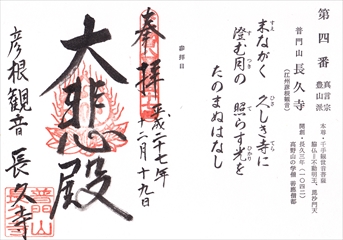 第四番
真言宗
豊山派
普門山 長久寺
(江州彦根観音)
本尊・千手観世音菩薩
脇仏=不動明王、毘沙門天
開創・長久三年(一〇四二)
高野山の学僧 善應僧都
末ながく 久しき寺に
すえ ひさ てら
澄む月の 照らす光を
す つき て ひかり
たのまぬはなし
参拝日
奉拝
平成二十七年
十二月十九日
大悲殿
彦根観音 長久寺
普門山
長久寺